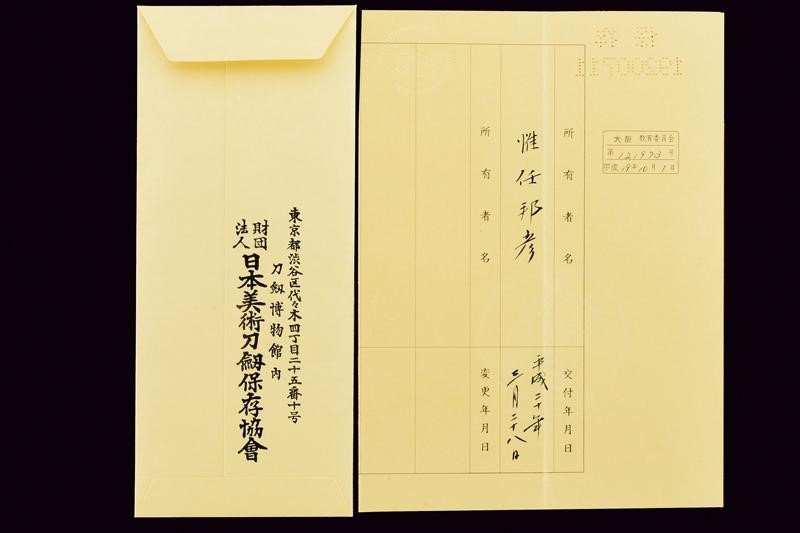 東京都渋谷区代々木四丁目二十五番十号
刀劔博物館内
財団法人
日本美術刀劔保存協會
19200711
大阪 教育委員会
第 121973 号
平成 19年10月1日
所有者名
交付年月日
惟任邦彦
平成二十年
三月二十八日
所有者名
変更年月日